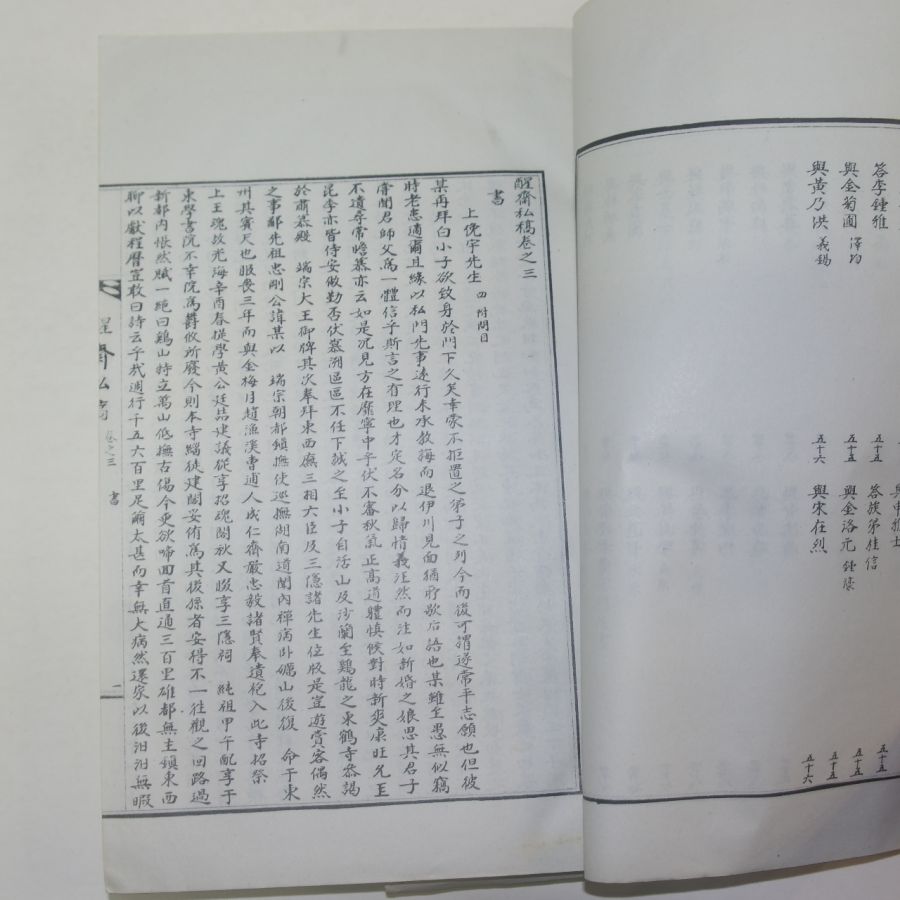 答李鍾維
五十五
五十五
與金菊圃 澤均
五十五
答族弟桂信
五十五
與黃乃洪 義錫
五十六
與金洛元 鍾
五十五
與宋在烈
五十六
醒齋私稿卷之三
書
上俛宇先生 四 附問目
某再拜白小子欲致身於門下久矣幸蒙不拒置之弟子之列今而後可謂遂常平志願也但彼
時老炁適爾且緣以私門先事遠行未承教誨而退伊川見面猶歇后語也某雖至愚無似竊
常聞君師父爲一體信乎斯言之有理也才定名分以歸情義汪然而注如新婚之娘思其君子
不遺尋常瞻慕亦云如是況見方在靡寧中乎伏不審秋氣正高道體愼候對時新爽康旺允玉
昆季亦皆侍安做勤否伏慕溯區區不任下誠之至小子自活山及沙蘭至鷄龍之東鶴寺恭謁
於肅慕殿 端宗大王御牌其次奉拜東西廡三相六臣及三隱諸先生位版是豈遊賞客偶然
之事鄙先祖忠剛公諱某以 端宗朝都鎭撫使巡撫湖南道聞內禪病卧孋山後復 命于東
州其賓天也服喪三年而與金梅月趙漁溪曺逋人成仁齋嚴忠毅諸賢奉遺袍入此寺招祭
上王魂故光海辛酉春提學黃公廷喆建議從享招魂閣秋又腏享三隱祠 純祖甲午配享于
東學書院不幸院爲欝攸所廢今則本寺緇徒建閣妥侑爲其後孫者安得不一往觀之回路過
新都內悵然賦一絶曰鷄山特立萬山低撫古傷今更欲啼回首直通三百里雄都無主鎭東西
聊以獻程曆豈敢曰詩云乎哉週行千五六百里足繭太甚而幸無大病然還家以後汨汨無暇
醒齋私稿 卷之三 書
二